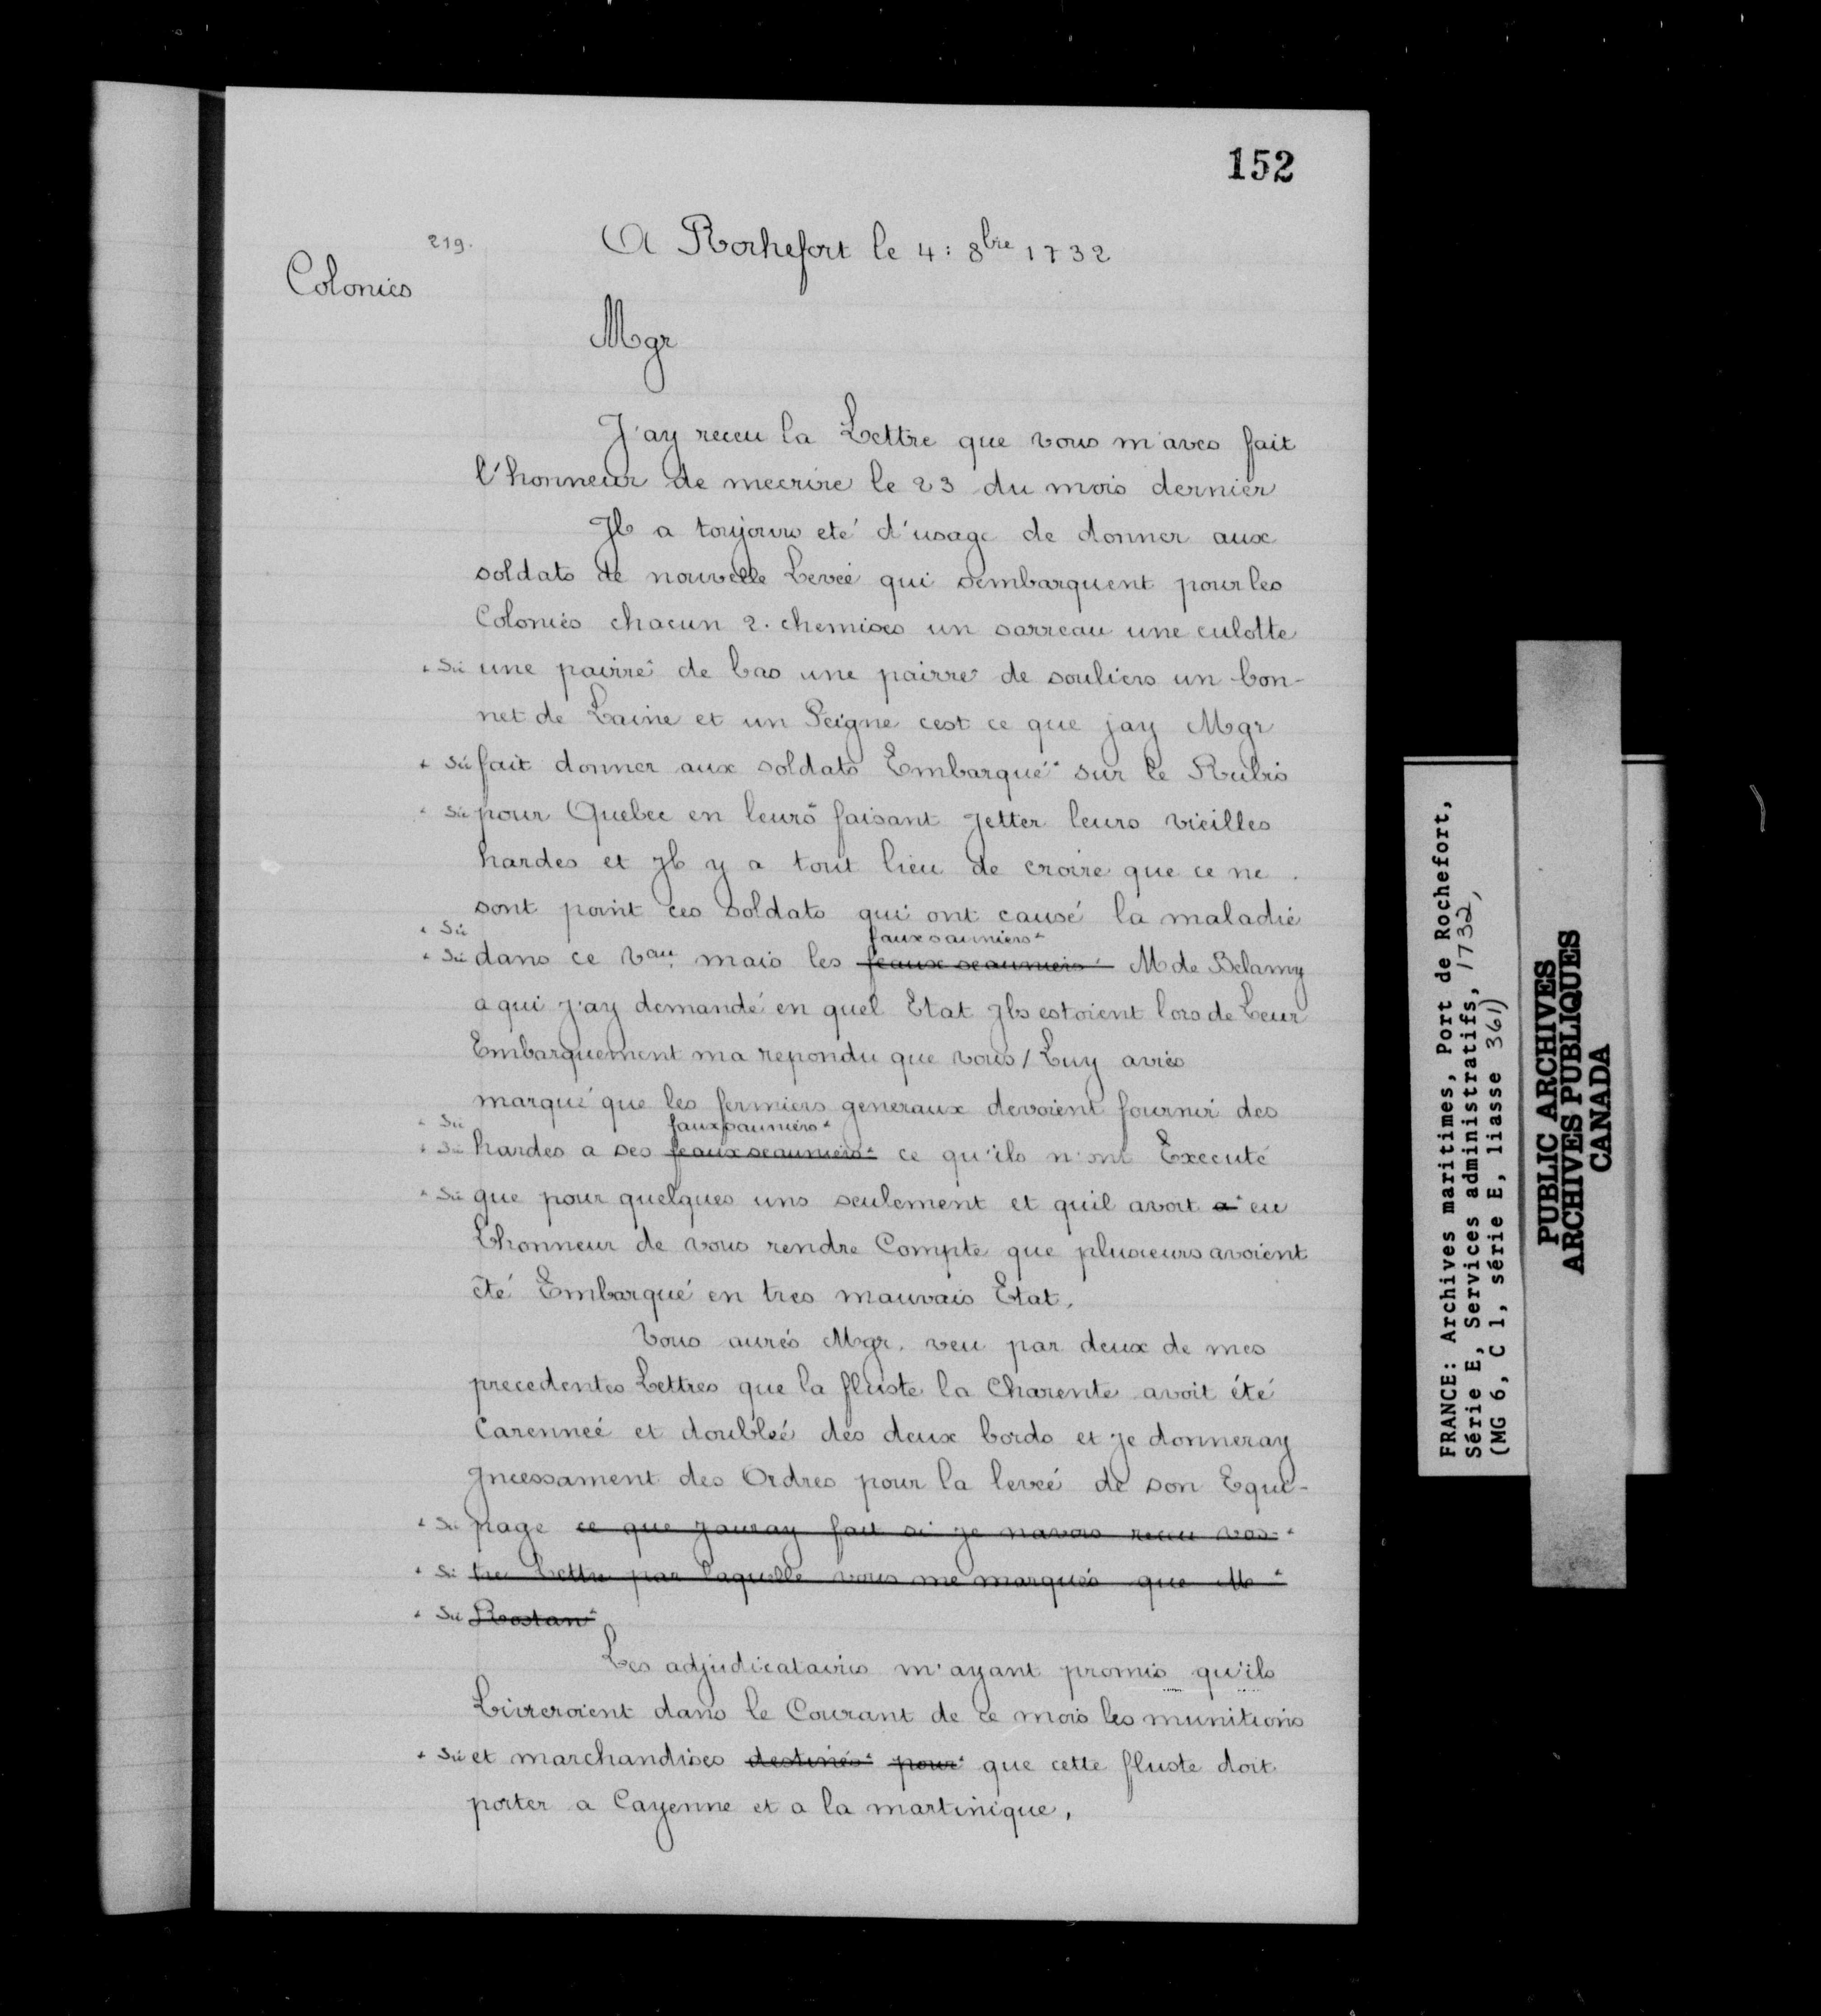 152
219.
A Rochefort le 4: 8bre 1732
Colonies
Mgr
J'ay receu la Lettre que vous m'aves fait
l'honneur de mecrire le 23 du mois dernier
Jl a toujours eté d'usage de donner aux
soldats de nouvelle Levée qui sembarquent pour les
Colonies chacun 2. chemises un sarreau une culotte
+ Sic une pairre+ de bas une pairre+ de souliers un bon-
net de Laine et un Peigne cest ce que jay Mgr
+ Sic fait donner aux soldats Embarqué+ sur le Rubis
+ Sic pour Quebec en leurs+ faisant Jetter leurs vieilles
hardes et Jl y a tout lieu de croire que ce ne
sont point ces soldats qui ont causé la maladie
+ Sic faux sauniers+
+ Sic dans ce Vau. mais les feaux seauniers+ M de Belamy
a qui J'ay demandé en quel Etat Jls estoient lors de Leur
Embarquement ma repondu que vous / Luy aviés
marqué que les fermiers generaux devoient fournir des
+ Sic faux sauniers+
+ Sic hardes a ses feaux seauniers+ ce qu'ils n'ont Executé
+ Sic que pour quelques uns seulement et quil avoit a+ eu
Lhonneur de vous rendre Compte que plusieurs avoient
été Embarqué en tres mauvais Etat.
Vous aurés Mgr. veu par deux de mes
precedentes Lettres que la fluste la Charente avoit été
Carennée et doublée des deux bords et je donneray
Jncessament des Ordres pour la levée de son Equi-
+ Sic page ce que Jauray fait si je navois receu vos-+
+ Sic tre Lettre par laquelle vous me marqués que M+
+ Sic Rostan+
Les adjudicataires m'ayant promis qu'ils
Livreroient dans le Courant de ce mois les munitions
+ Sic et marchandises destinés+ pour+ que cette fluste doit
porter a Cayenne et a la martinique,
FRANCE: Archives maritimes, Port de Rochefort,
Série E, Services administratifs, 1732,
(MG 6, C 1, série E, liasse 361)
PUBLIC ARCHIVES
ARCHIVES PUBLIQUES
CANADA